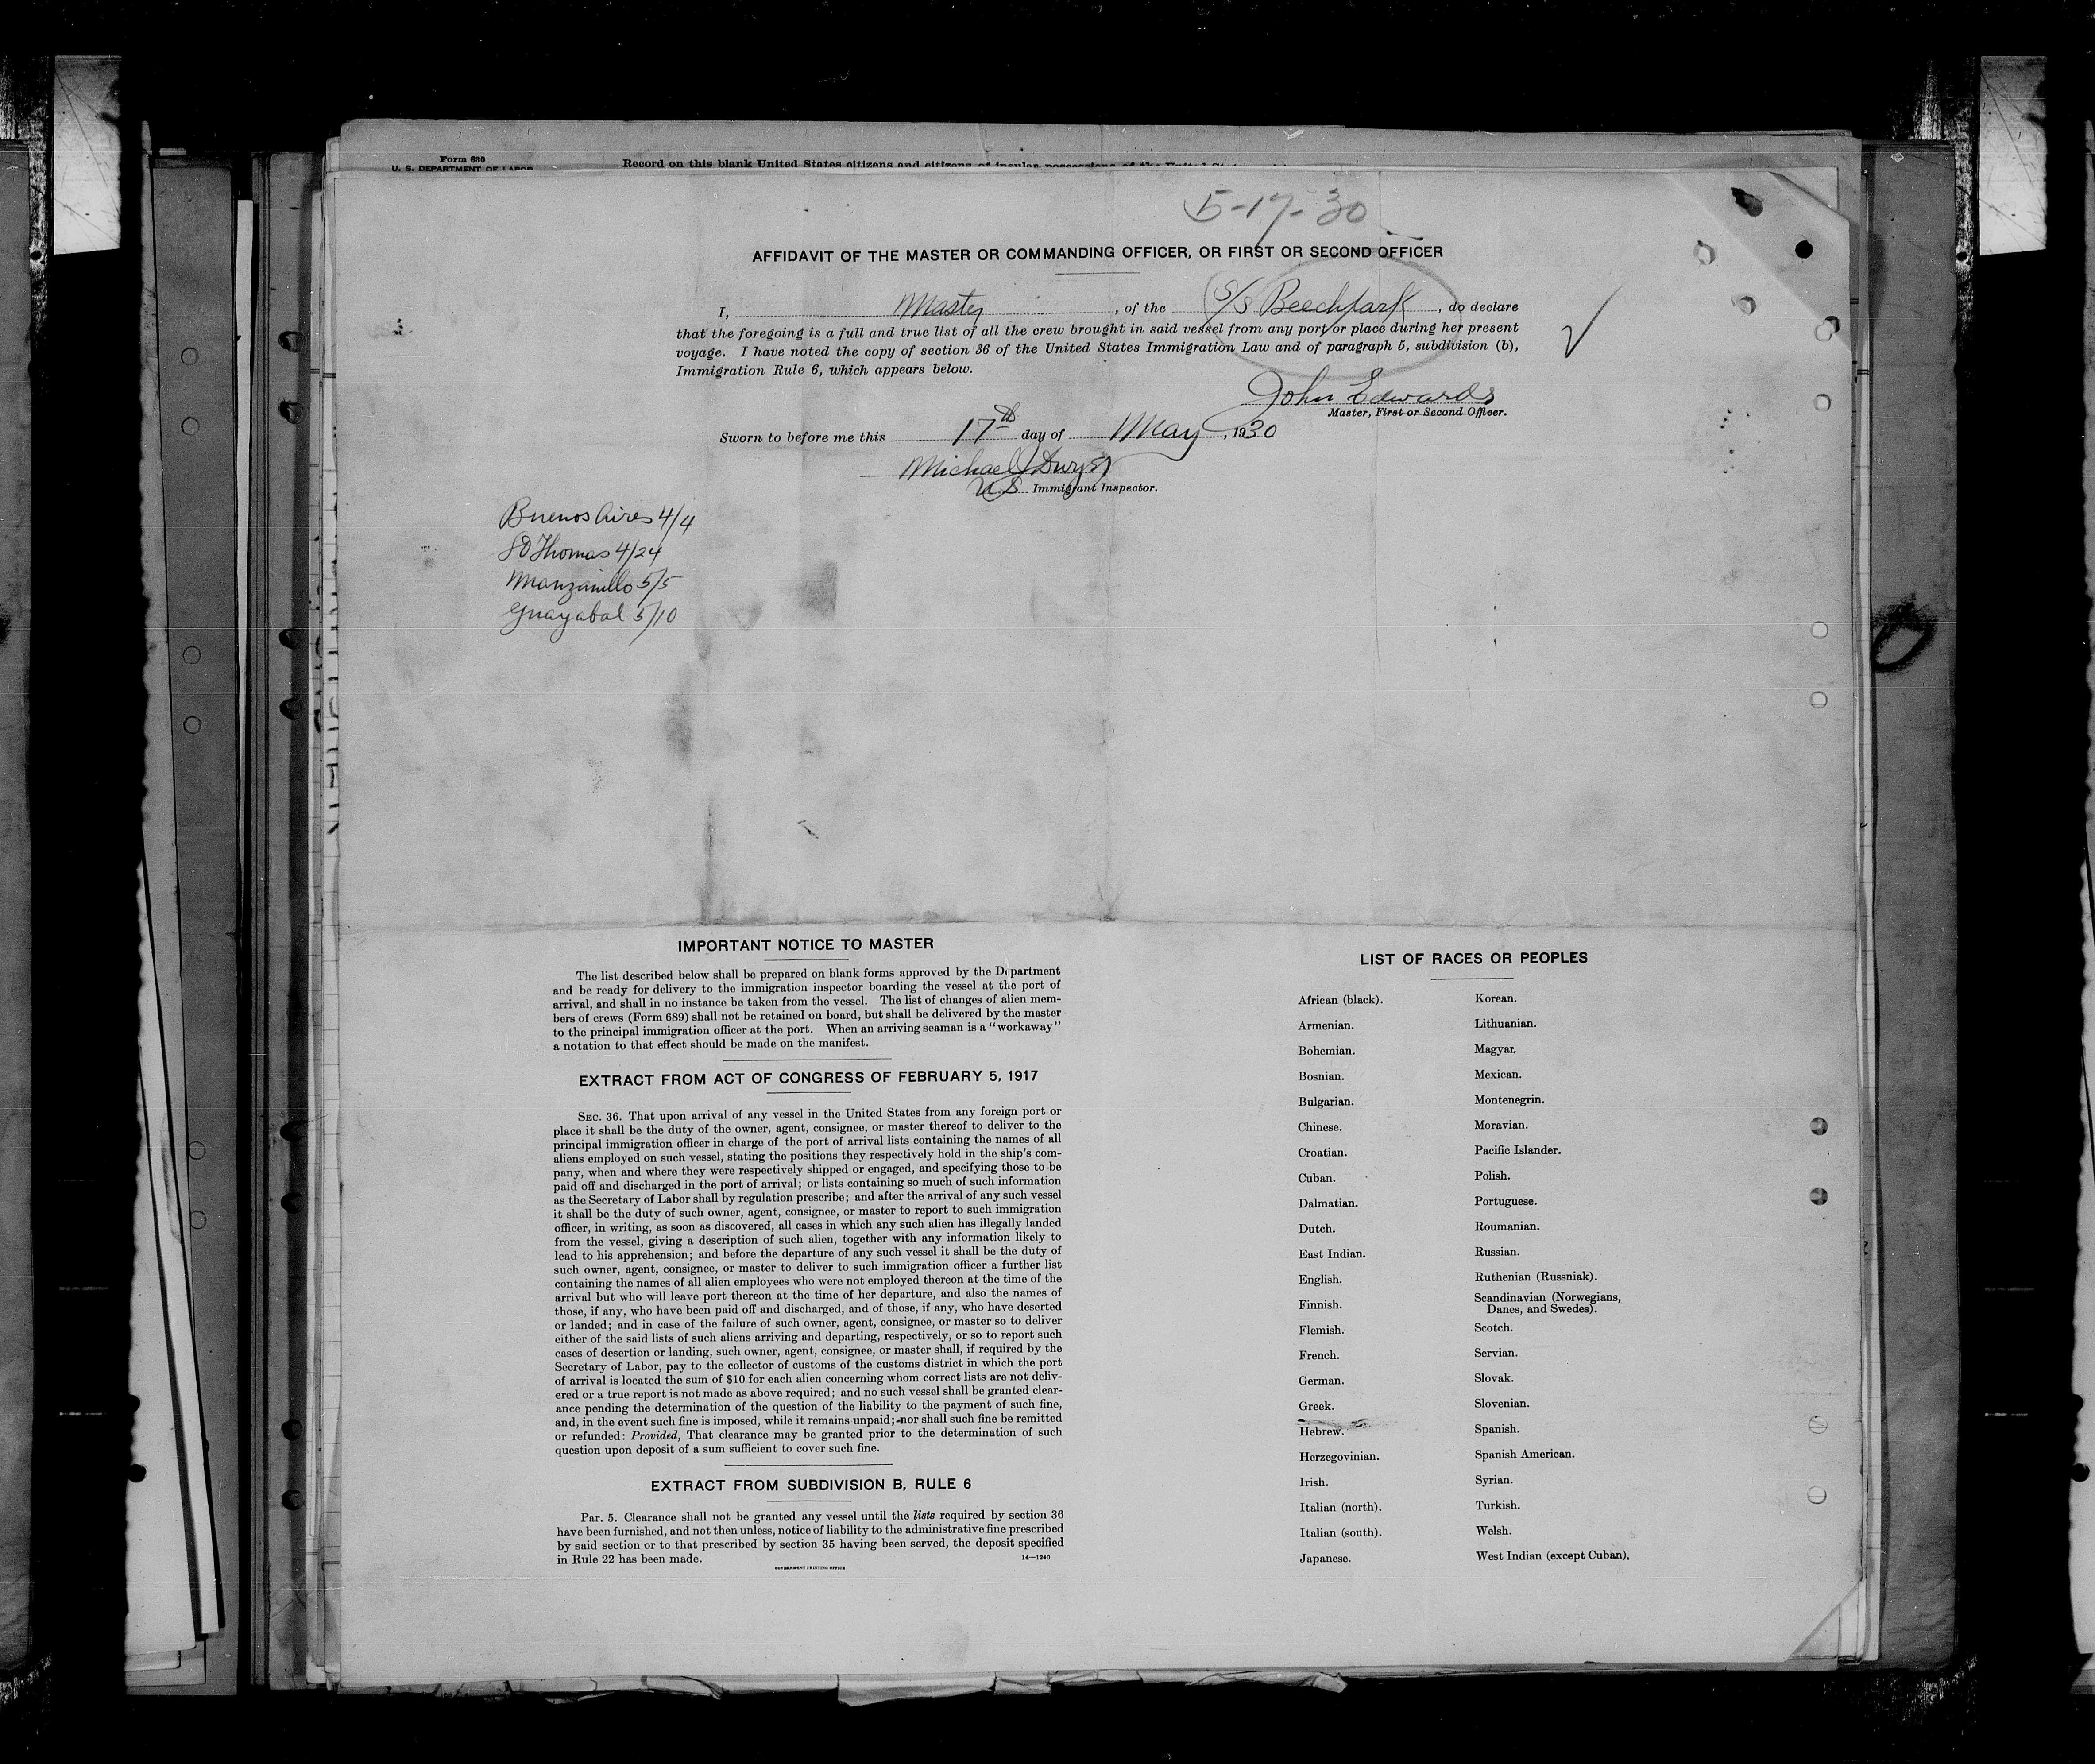 Form 630
U. S. DEPARTMENT OF LABOR
Record on this blank United States citizens and citizens of insular possessions of the United
5-17-30
AFFIDAVIT OF THE MASTER OR COMMANDING OFFICER, OR FIRST OR SECOND OFFICER
I, Master, of the S/S Beechpark, do declare
that the foregoing is a full and true list of all the crew brought in said vessel from any port or place during her present
voyage. I have noted the copy of section 36 of the United States Immigration Law and of paragraph 5, subdivision (b),
Immigration Rule 6, which appears below.
John Edwards
Master, First or Second Officer.
Sworn to before me this 17th day of May, 1930
Michael J Dwyer
US Immigrant Inspector.
Buenos Aires 4/4
Thomas 4/24
Manzanillo 5/5
Guayabal 5/10
IMPORTANT NOTICE TO MASTER
The list described below shall be prepared on blank forms approved by the Department
and be ready for delivery to the immigration inspector boarding the vessel at the port of
arrival, and shall in no instance be taken from the vessel. The list of changes of alien mem-
bers of crews (Form 689) shall not be retained on board, but shall be delivered by the master
to the principal immigration officer at the port. When an arriving seaman is a "workaway"
a notation to that effect should be made on the manifest.
EXTRACT FROM ACT OF CONGRESS OF FEBRUARY 5, 1917
SEC. 36. That upon arrival of any vessel in the United States from any foreign port or
place it shall be the duty of the owner, agent, consignee, or master thereof to deliver to the
principal immigration officer in charge of the port of arrival lists containing the names of all
aliens employed on such vessel, stating the positions they respectively hold in the ship's com-
pany, when and where they were respectively shipped or engaged, and specifying those to be
paid off and discharged in the port of arrival; or lists containing so much of such information
as the Secretary of Labor shall by regulation prescribe; and after the arrival of any such vessel
it shall be the duty of such owner, agent, consignee, or master to report to such immigration
officer, in writing, as soon as discovered, all cases in which any such alien has illegally landed
from the vessel, giving a description of such alien, together with any information likely to
lead to his apprehension; and before the departure of any such vessel it shall be the duty of
such owner, agent, consignee, or master to deliver to such immigration officer a further list
containing the names of all alien employees who were not employed thereon at the time of the
arrival but who will leave port thereon at the time of her departure, and also the names of
those, if any, who have been paid off and discharged, and of those, if any, who have deserted
or landed; and in case of the failure of such owner, agent, consignee, or master so to deliver
either of the said lists of such aliens arriving and departing, respectively, or so to report such
cases of desertion or landing, such owner, agent, consignee, or master shall, if required by the
Secretary of Labor, pay to the collector of customs of the customs district in which the port
of arrival is located the sum of $10 for each alien concerning whom correct lists are not deliv-
ered or a true report is not made as above required; and no such vessel shall be granted clear-
ance pending the determination of the question of the liability to the payment of such fine,
and, in the event such fine is imposed, while it remains unpaid; nor shall such fine be remitted
or refunded: Provided, That clearance may be granted prior to the determination of such
question upon deposit of a sum sufficient to cover such fine.
EXTRACT FROM SUBDIVISION B, RULE 6
PAR. 5. Clearance shall not be granted any vessel until the lists required by section 36
have been furnished, and not then unless, notice of liability to the administrative fine prescribed
by said section or to that prescribed by section 35 having been served, the deposit specified
in Rule 22 has been made.
14—1240
GOVERNMENT PRINTING OFFICE
LIST OF RACES OR PEOPLES
African (black).
Armenian.
Bohemian.
Bosnian.
Bulgarian.
Chinese.
Croatian.
Cuban.
Dalmatian.
Dutch.
East Indian.
English.
Finnish.
Flemish.
French.
German.
Greek.
Hebrew.
Herzegovinian.
Irish.
Italian (north).
Italian (south).
Japanese.
Korean.
Lithuanian.
Magyar.
Mexican.
Montenegrin.
Moravian.
Pacific Islander.
Polish.
Portuguese.
Roumanian.
Russian.
Ruthenian (Russniak).
Scandinavian (Norwegians,
Danes, and Swedes).
Scotch.
Servian.
Slovak.
Slovenian.
Spanish.
Spanish American.
Syrian.
Turkish.
Welsh.
West Indian (except Cuban).